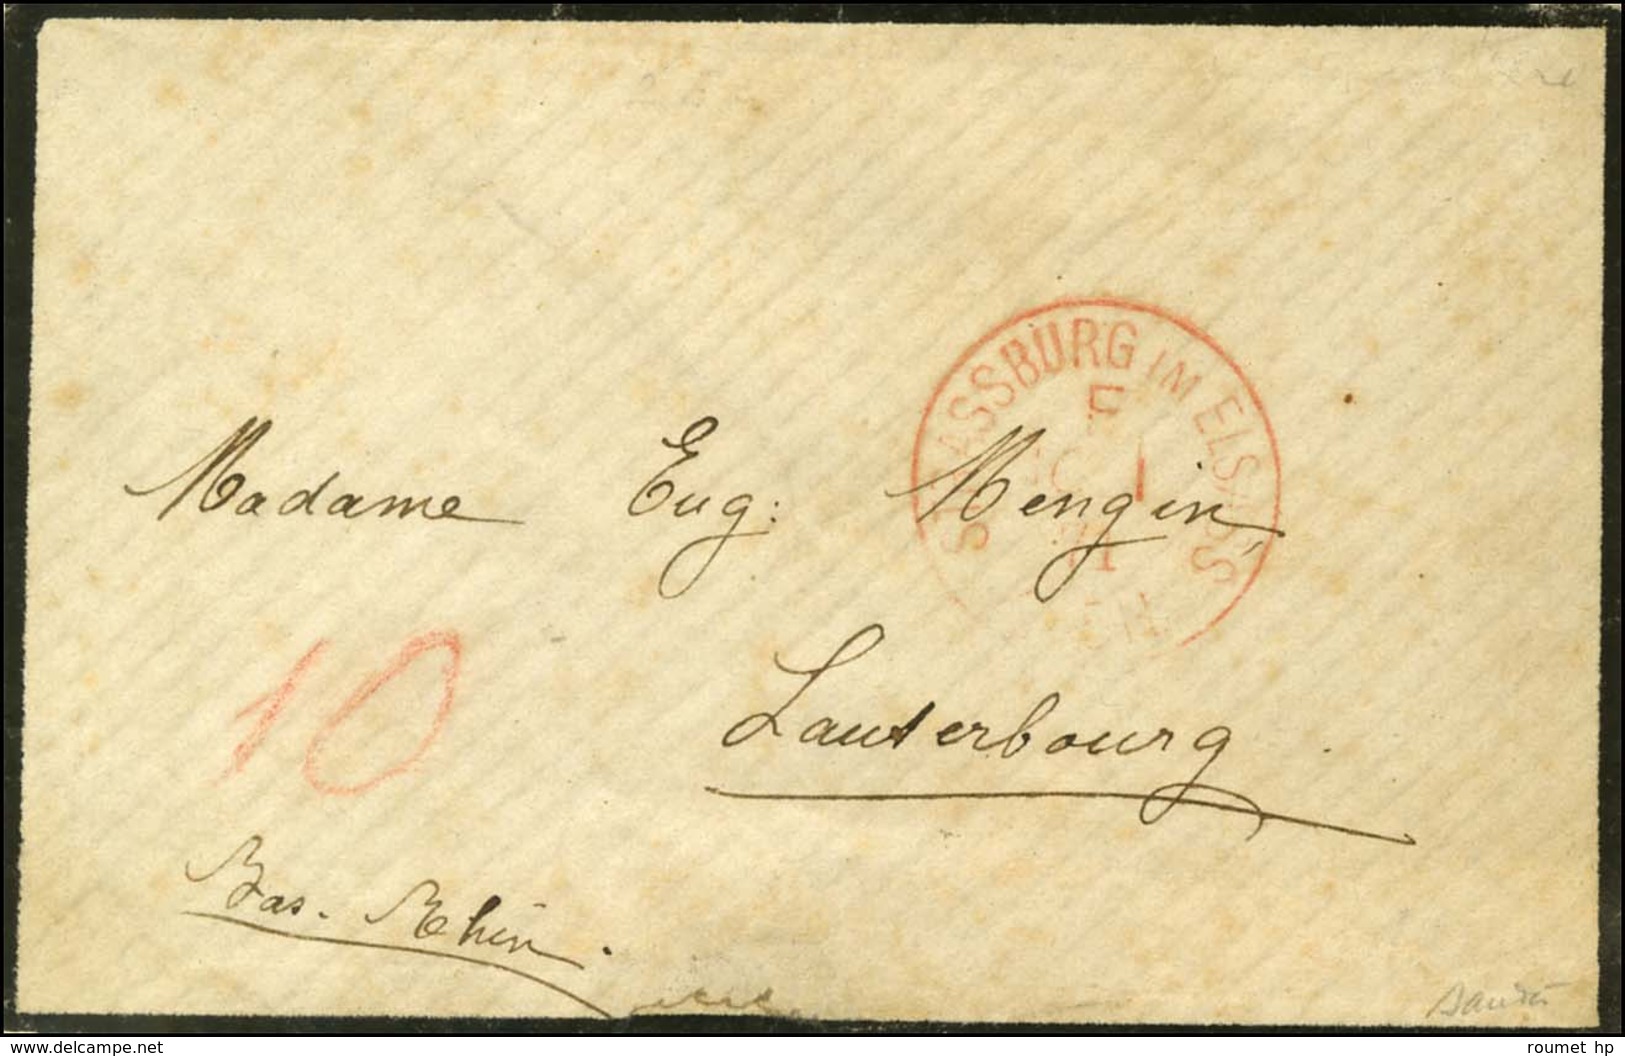 STRASSBURG IM ELSASS
F
10 1
71
Madame Eug: Mengin
Lauterbourg
10
Bas-Rhin.
www.delcampe.net
roumet hp